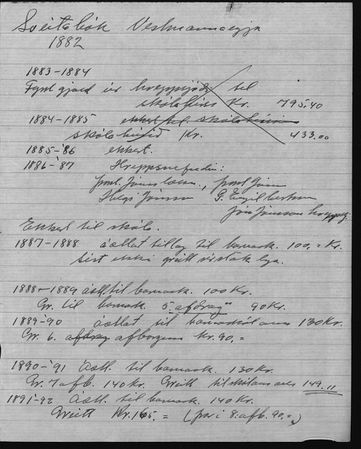 Sveitabók Vestmannaeyja
1882
1883-1884
Fyrst gjald úr hreppsjóði til
skólahúss Kr. 795.40
1884-1885 ekkert til skóla
skólahúsið Kr. 433.00
1885-'86 ekkert.
1886-'87 Hreppsnefndin:
Jónsson, 
Helgi Jónsson
Jón Jónsson
Ekkert til skóla.
1887-1888 áætlað tillag til barnask. 100,- Kr.
Sést ekki greitt
1888-1889 áætl. til barnask. 100 Kr.
Gr. til barnask. 5. afborg" 90 Kr.
1889-90 áætlað til barnaskólans 130 Kr.
Gr. 6. afborgun Kr. 90,=
1890-'91 Áætl. til barnask. 130 Kr.
Gr. 7 afb. 140 Kr. Greitt til skólans alls 149.11
1891-'92 Áætl. til barnask. 140 Kr.
Greitt Kr. 165.= (þar í 8. afb. 90.=)